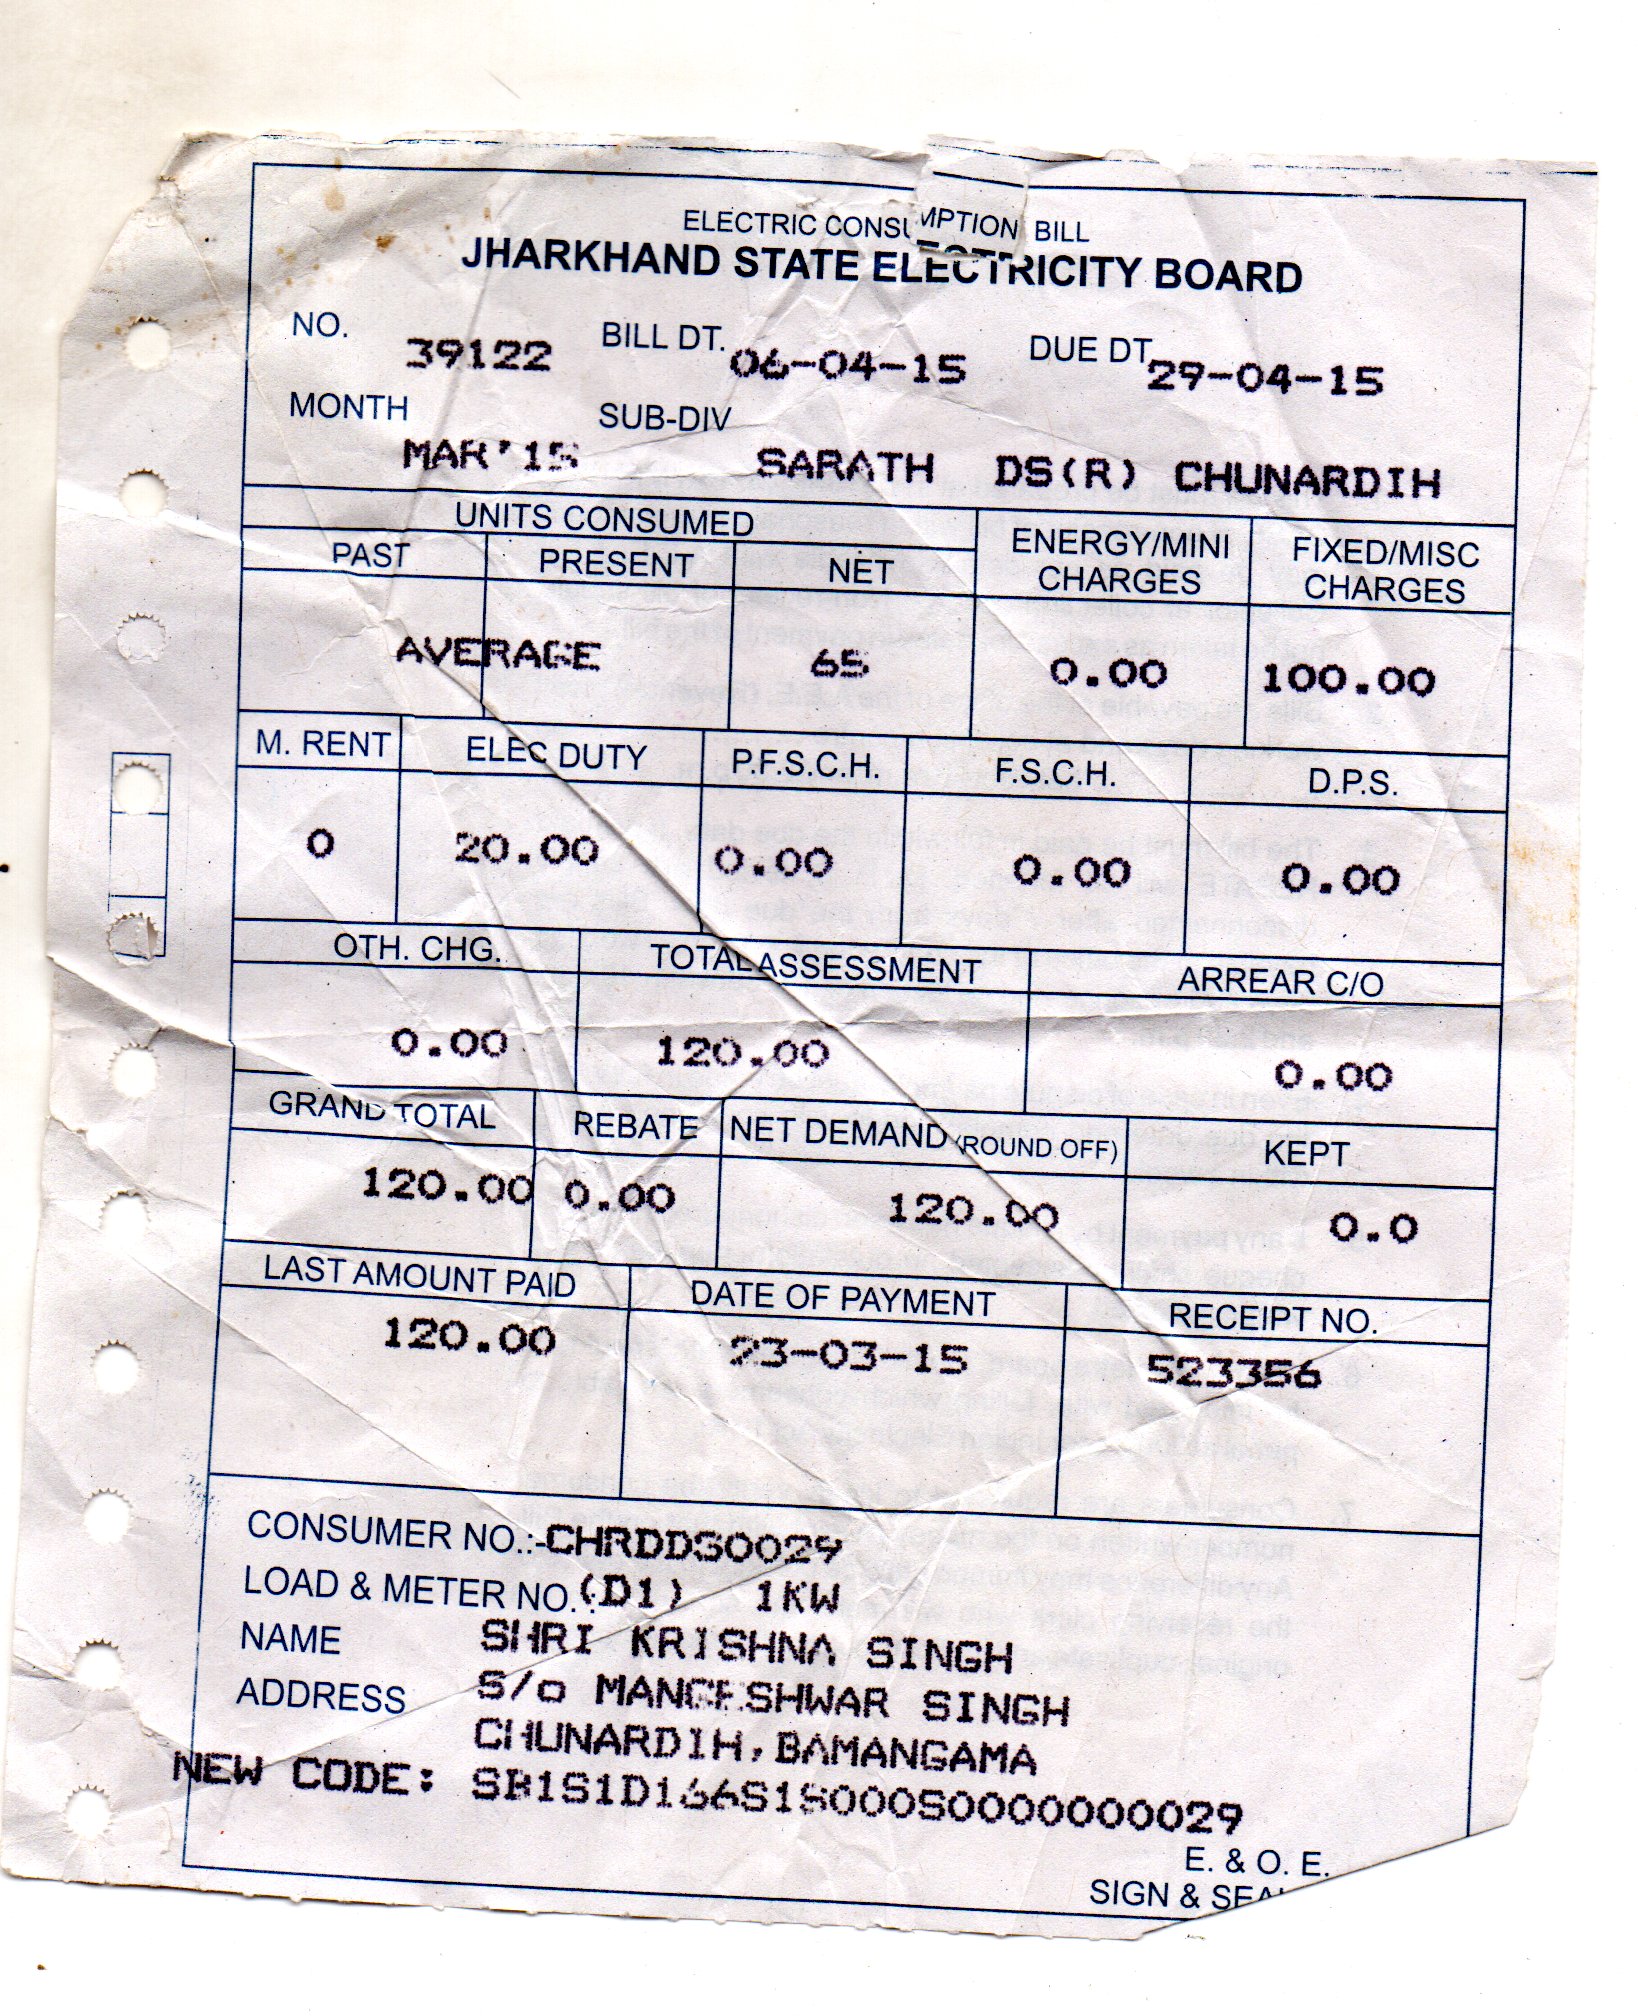 ELECTRIC CONSUMPTION BILL
JHARKHAND STATE ELECTRICITY BOARD
NO. 39122 BILL DT. 06-04-15 DUE DT. 29-04-15
MONTH MAR'15 SUB-DIV SARATH DS(R) CHUNARDIH
UNITS CONSUMED ENERGY/MINI CHARGES FIXED/MISC CHARGES
PAST PRESENT NET
AVERAGE 65 0.00 100.00
M. RENT ELEC DUTY P.F.S.C.H. F.S.C.H. D.P.S.
0 20.00 0.00 0.00 0.00
OTH. CHG. TOTAL ASSESSMENT ARREAR C/O
0.00 120.00 0.00
GRAND TOTAL REBATE NET DEMAND (ROUND OFF) KEPT
120.00 0.00 120.00 0.0
LAST AMOUNT PAID DATE OF PAYMENT RECEIPT NO.
120.00 23-03-15 523356
CONSUMER NO.:-CHRDDS0029
LOAD & METER NO.:(D1) 1KW
NAME SHRI KRISHNA SINGH
ADDRESS S/o MANGESHWAR SINGH
CHUNARDIH,BAMANGAMA
NEW CODE: SB1S1D166S1S000S0000000029
E. & O. E.
SIGN & SEAL